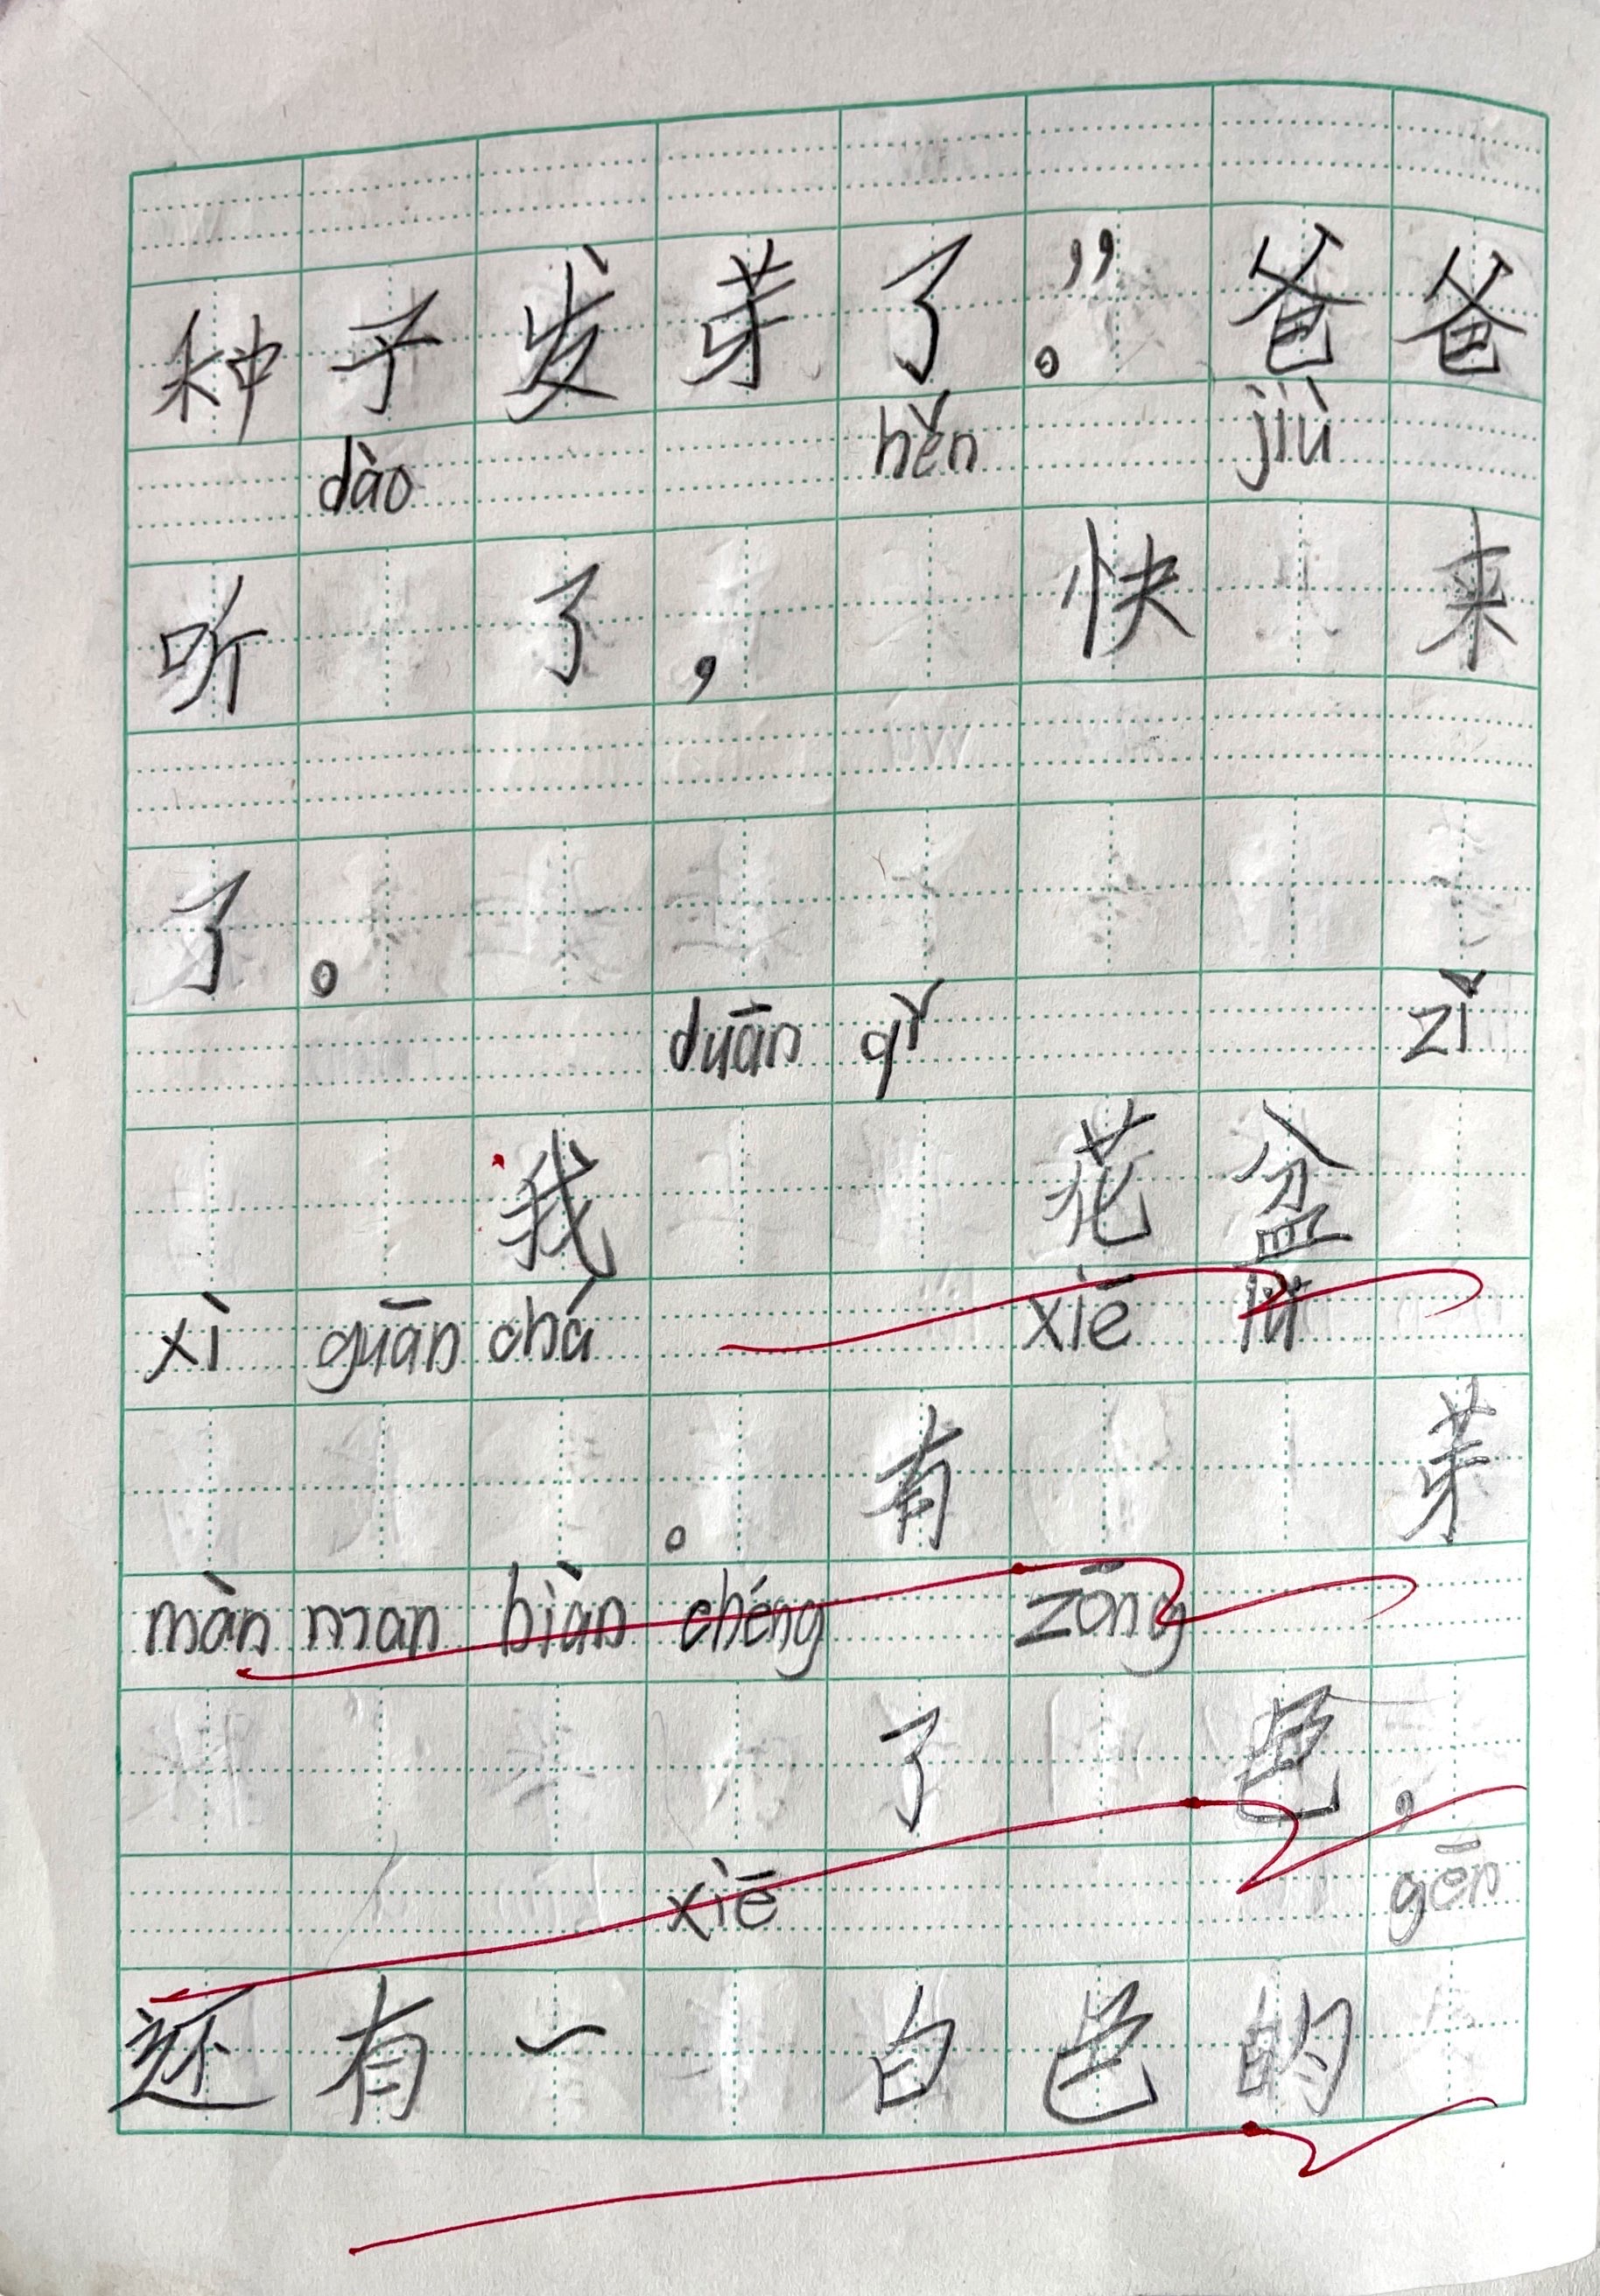 种子发芽了。”爸爸
dào hěn jiù
听了，快来
了。
duān qǐ zǐ
我花盆
xì guān chá xiē lǜ
。有芽
màn man biàn chéng zōng
了色，
xiē gēn
还有一白色的